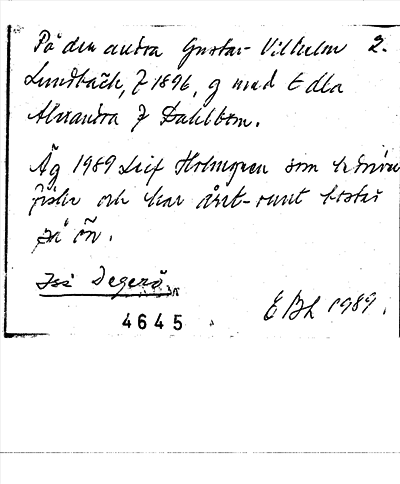 På den andra Gustav Vilhelm 2.
Lundbäck, f 1896, g med Edla
Alexandra f Dahlbom.
Äg 1989 Leif Holmgren som bedriver
fiske och har året-runt bostad
på ön.
Degerö
4645
E Bh 1989.